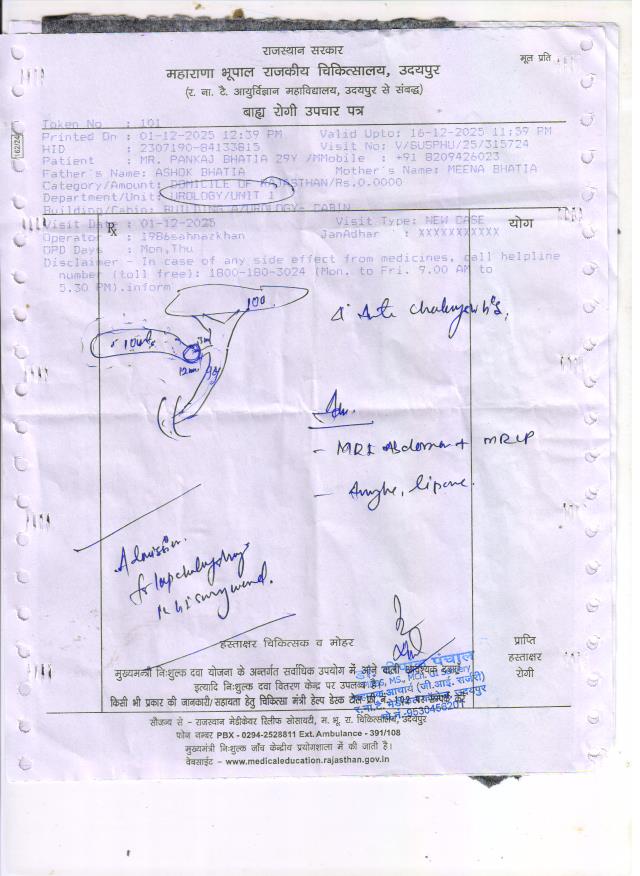 राजस्थान सरकार
मूल प्रति
महाराणा भूपाल राजकीय चिकित्सालय, उदयपुर
(र. ना. टै. आयुर्विज्ञान महाविद्यालय, उदयपुर से संबद्ध)
बाह्य रोगी उपचार पत्र
162/24
Token No : 101
Printed On : 01-12-2025 12:39 PM Valid Upto: 16-12-2025 11:59 PM
HID : 2307190-84133815 Visit No: V/SUSPHU/25/315724
Patient : MR. PANKAJ BHATIA 29Y /M Mobile : +91 8209426023
Father's Name: ASHOK BHATIA Mother's Name: MEENA BHATIA
Category/Amount: DOMICILE OF RAJASTHAN/Rs.0.0000
Department/Unit: UROLOGY/UNIT 1
Building/Cabin: BUILDING UROLOGY- CABIN
Visit Date : 01-12-2025 Visit Type: NEW CASE
℞
योग
Operator : 1986sahnazkhan JanAdhar : XXXXXXXXXXX
OPD Days : Mon,Thu
Disclaimer - In case of any side effect from medicines, call helpline
number (toll free): 1800-180-3024 (Mon. to Fri. 9.00 AM to
5.30 PM).inform
100
3m
12mm
Adv.
- MRI Abdomen + MRCP
- lipase.
Admission
for lap
in
हस्ताक्षर चिकित्सक व मोहर
प्राप्ति
हस्ताक्षर
रोगी
मुख्यमन्त्री निःशुल्क दवा योजना के अन्तर्गत सर्वाधिक उपयोग में आने वाली आवश्यक दवाएं
इत्यादि निःशुल्क दवा वितरण केन्द्र पर उपलब्ध है।
किसी भी प्रकार की जानकारी/सहायता हेतु चिकित्सा मंत्री हेल्प डेस्क
पंचाल
MS, MCh. GI Surgery
आचार्य (जी.आई. सर्जरी)
उदयपुर
9530456201
सौजन्य से - राजस्थान मेडीकेयर रिलीफ सोसायटी, म. भू. रा. चिकित्सालय, उदयपुर
फोन नम्बर PBX - 0294-2528811 Ext. Ambulance - 391/108
मुख्यमंत्री निःशुल्क जाँच केन्द्रीय प्रयोगशाला में की जाती है।
वेबसाईट - www.medicaleducation.rajasthan.gov.in